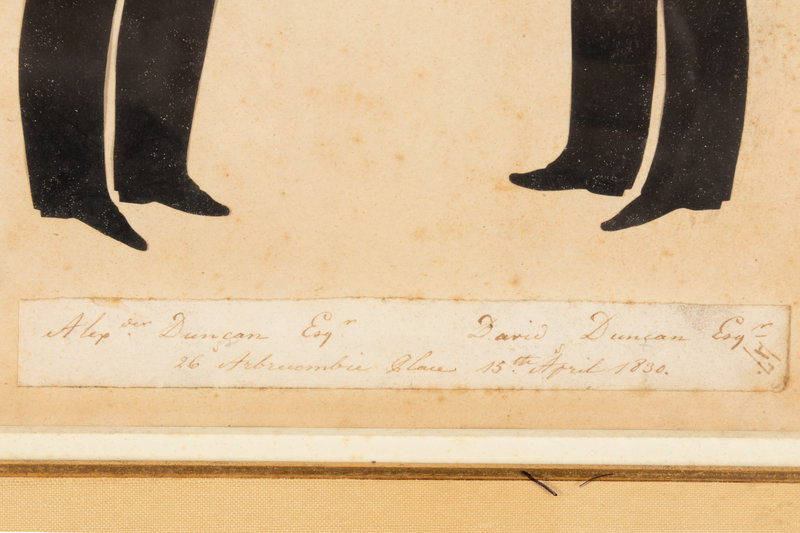 Alexder Duncan Esqr David Duncan Esqr
26 Place 15th April 1830.